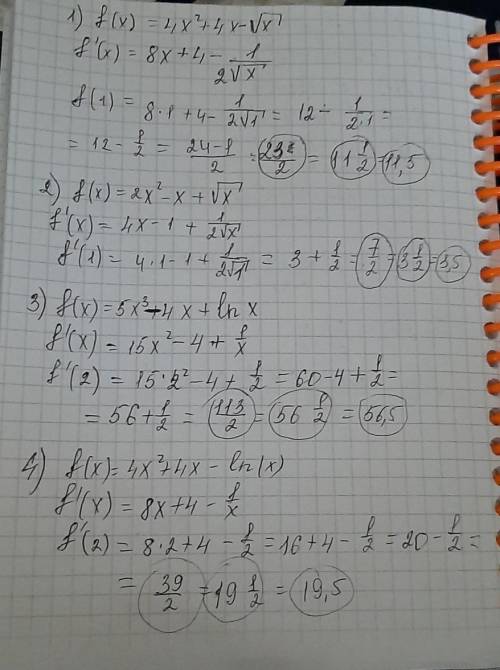 1) f(x) = 4x²+4x-√x
f'(x) = 8x+4- 1/(2√x)
f(1) = 8·1+4- 1/(2√1) = 12- 1/(2·1) =
= 12- 1/2 = (24-1)/2 = 23/2 = 11 1/2 = 11,5
2) f(x) = 2x²-x+√x
f'(x) = 4x-1 + 1/(2√x)
f'(1) = 4·1-1+ 1/(2√1) = 3+ 1/2 = 7/2 = 3 1/2 = 3,5
3) f(x) = 5x³-4x+ln x
f'(x) = 15x²-4+ 1/x
f'(2) = 15·2²-4+ 1/2 = 60-4+ 1/2 =
= 56+ 1/2 = 113/2 = 56 1/2 = 56,5
4) f(x) = 4x²+4x-ln(x)
f'(x) = 8x+4- 1/x
f'(2) = 8·2+4- 1/2 = 16+4- 1/2 = 20- 1/2 =
= 39/2 = 19 1/2 = 19,5